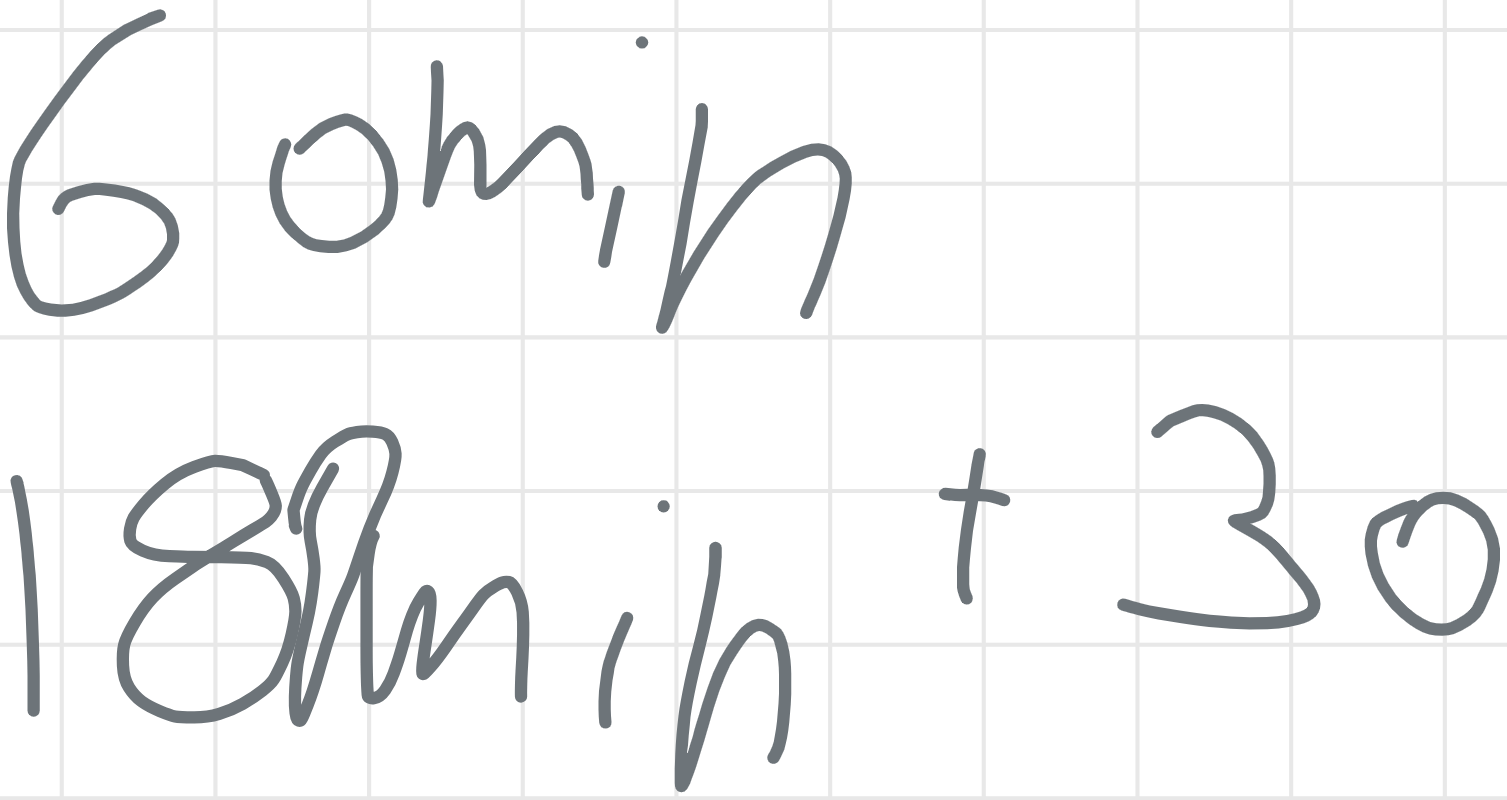 60min
18min + 30